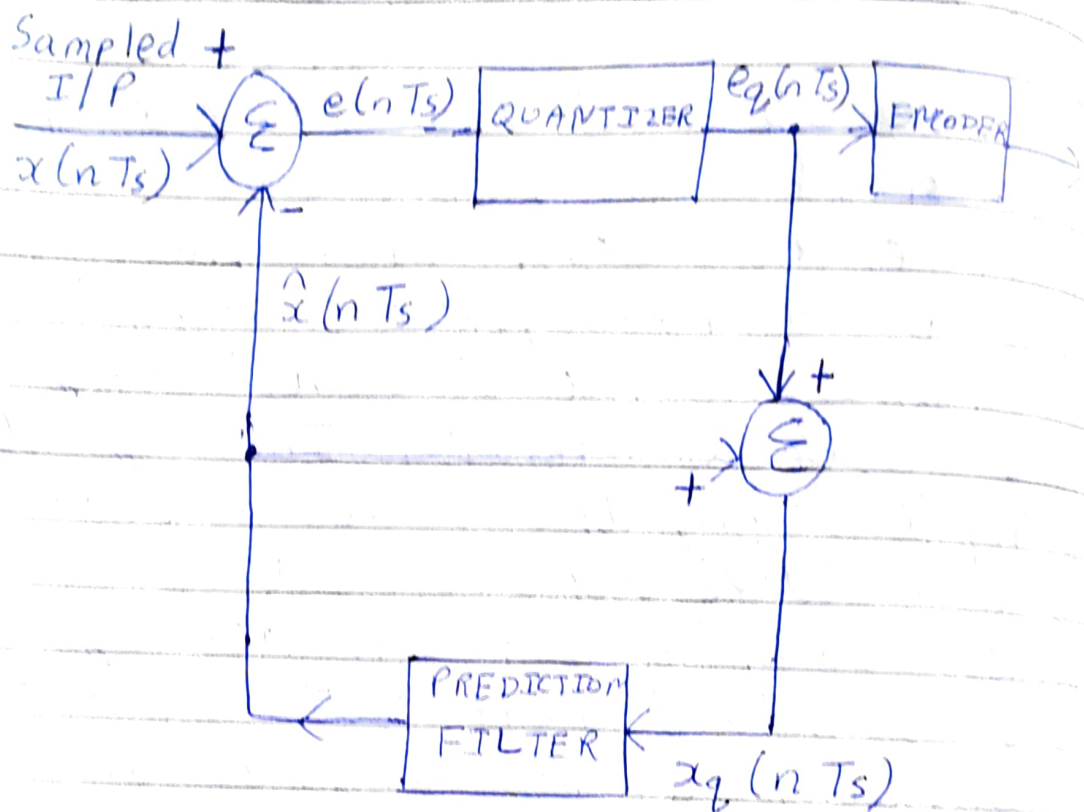 Sampled +
I/P
x(nTs)
Σ
e(nTs)
QUANTIZER
eq(nTs)
ENCODER
-
x̂(nTs)
+
Σ
+
PREDICTION
FILTER
xq(nTs)